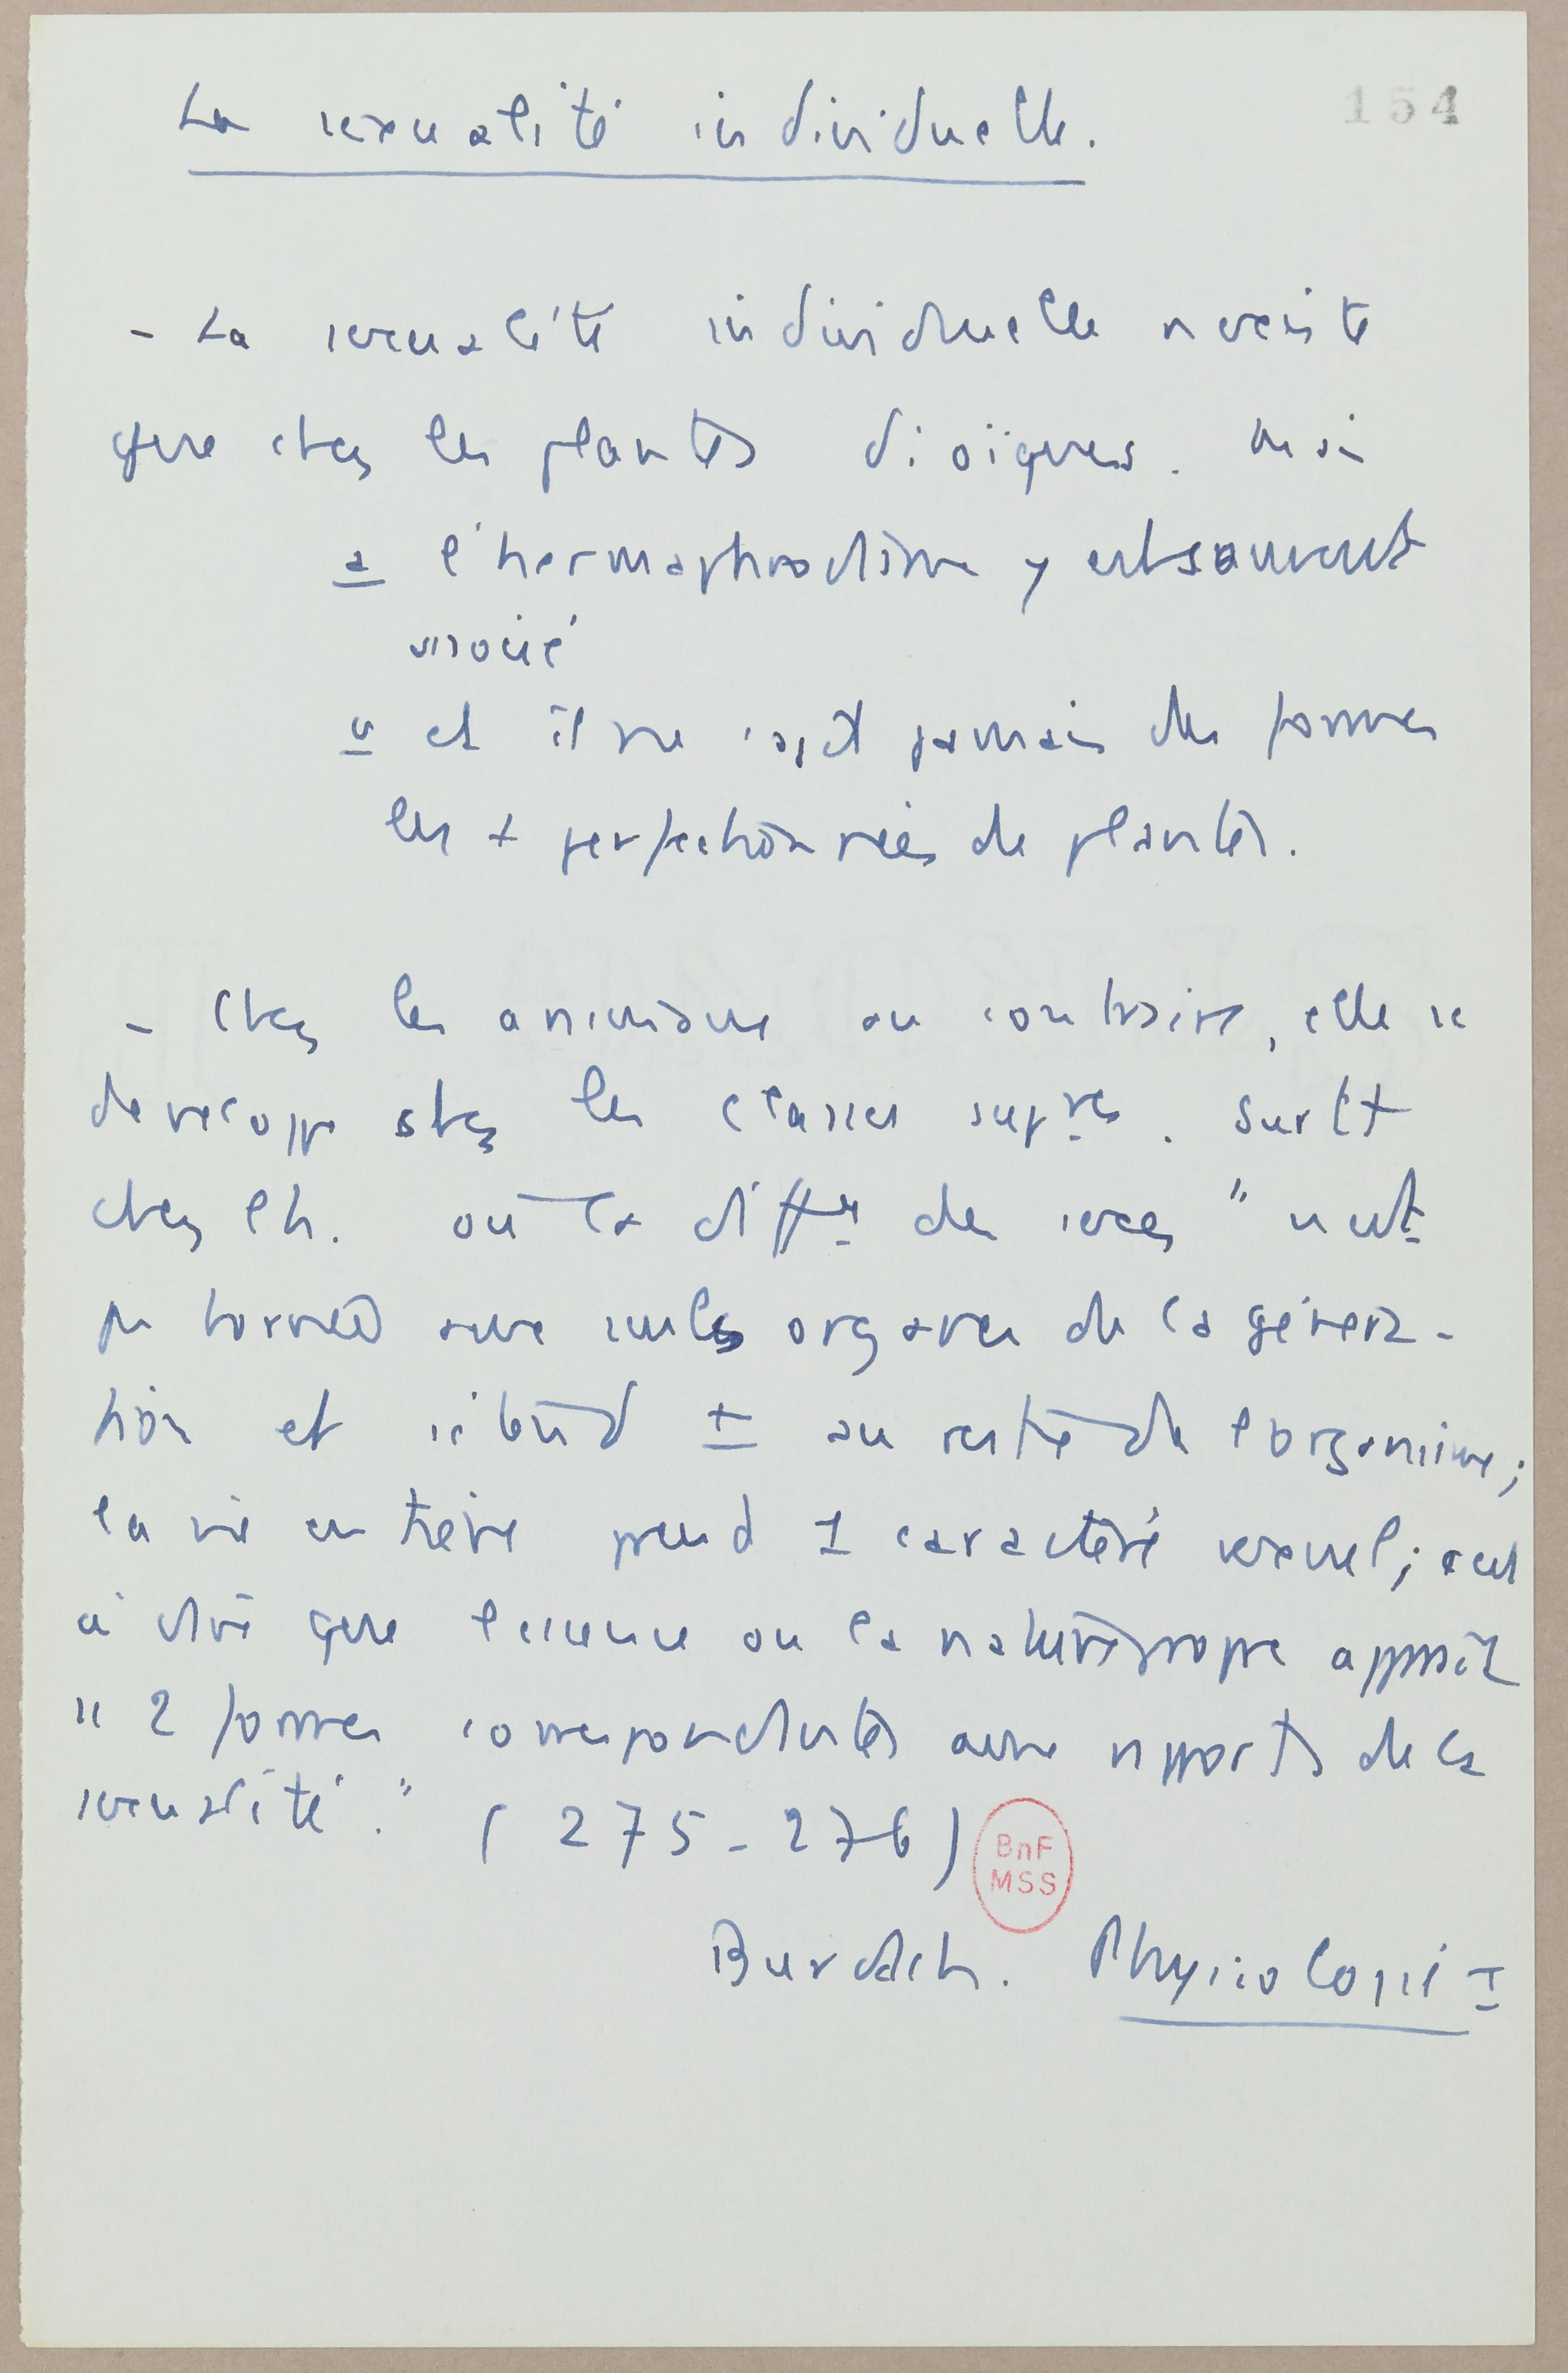 La sexualité individuelle.
154
- La sexualité individuelle n'existe
que chez les plantes dioïques. Mais
a l'hermaphrodisme y est souvent
associé
b et il ne s'agit jamais des formes
les + perfectionnées de plantes.
- Chez les animaux au contraire, elle se
developpe chez les classes supres. Surtt
chez l'h. où la diffce des sexes "n'est
pas bornée aux seuls organes de la généra-
tion et s'étend ± au reste de l'organisme;
la vie entière prend 1 caractère sexuel; c'est
à dire que l'essence ou la nature propre apparaît
ss 2 formes correspondantes aux rapports de la
sexualité." (275-276)
BnF
MSS
Burdach. Physiologie I